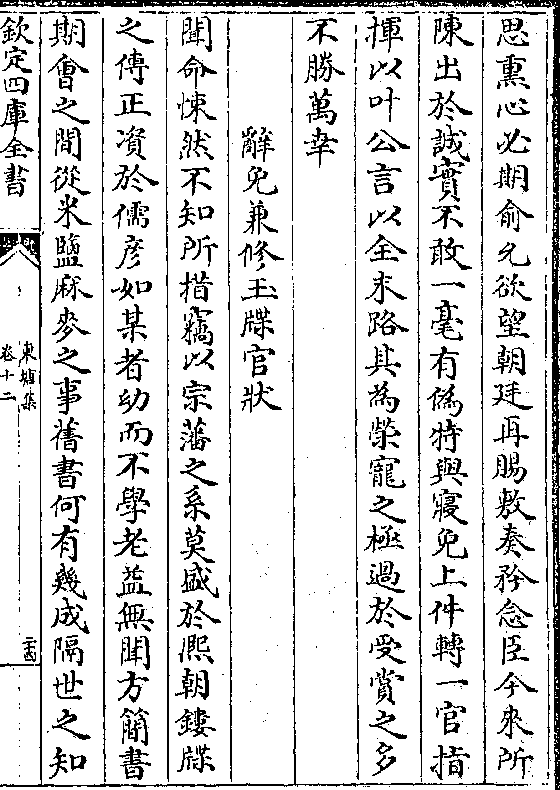 思熏心必期俞允欲望朝廷再賜敷奏矜念臣今來所
陳出於誠實不敢一毫有僞特與寢免上件轉一官指
揮以叶公言以全末路其為榮寵之極過於受賞之多
不勝萬幸
辭免兼修玉牒官狀
聞命悚然不知所措竊以宗藩之系莫盛於熈朝鏤牒
之傳正資於儒彦如某者幼而不學老益無聞方簿書
期會之間從米鹽麻麥之事舊書何有幾成隔世之知
欽定四庫全書
東塘集
卷十二